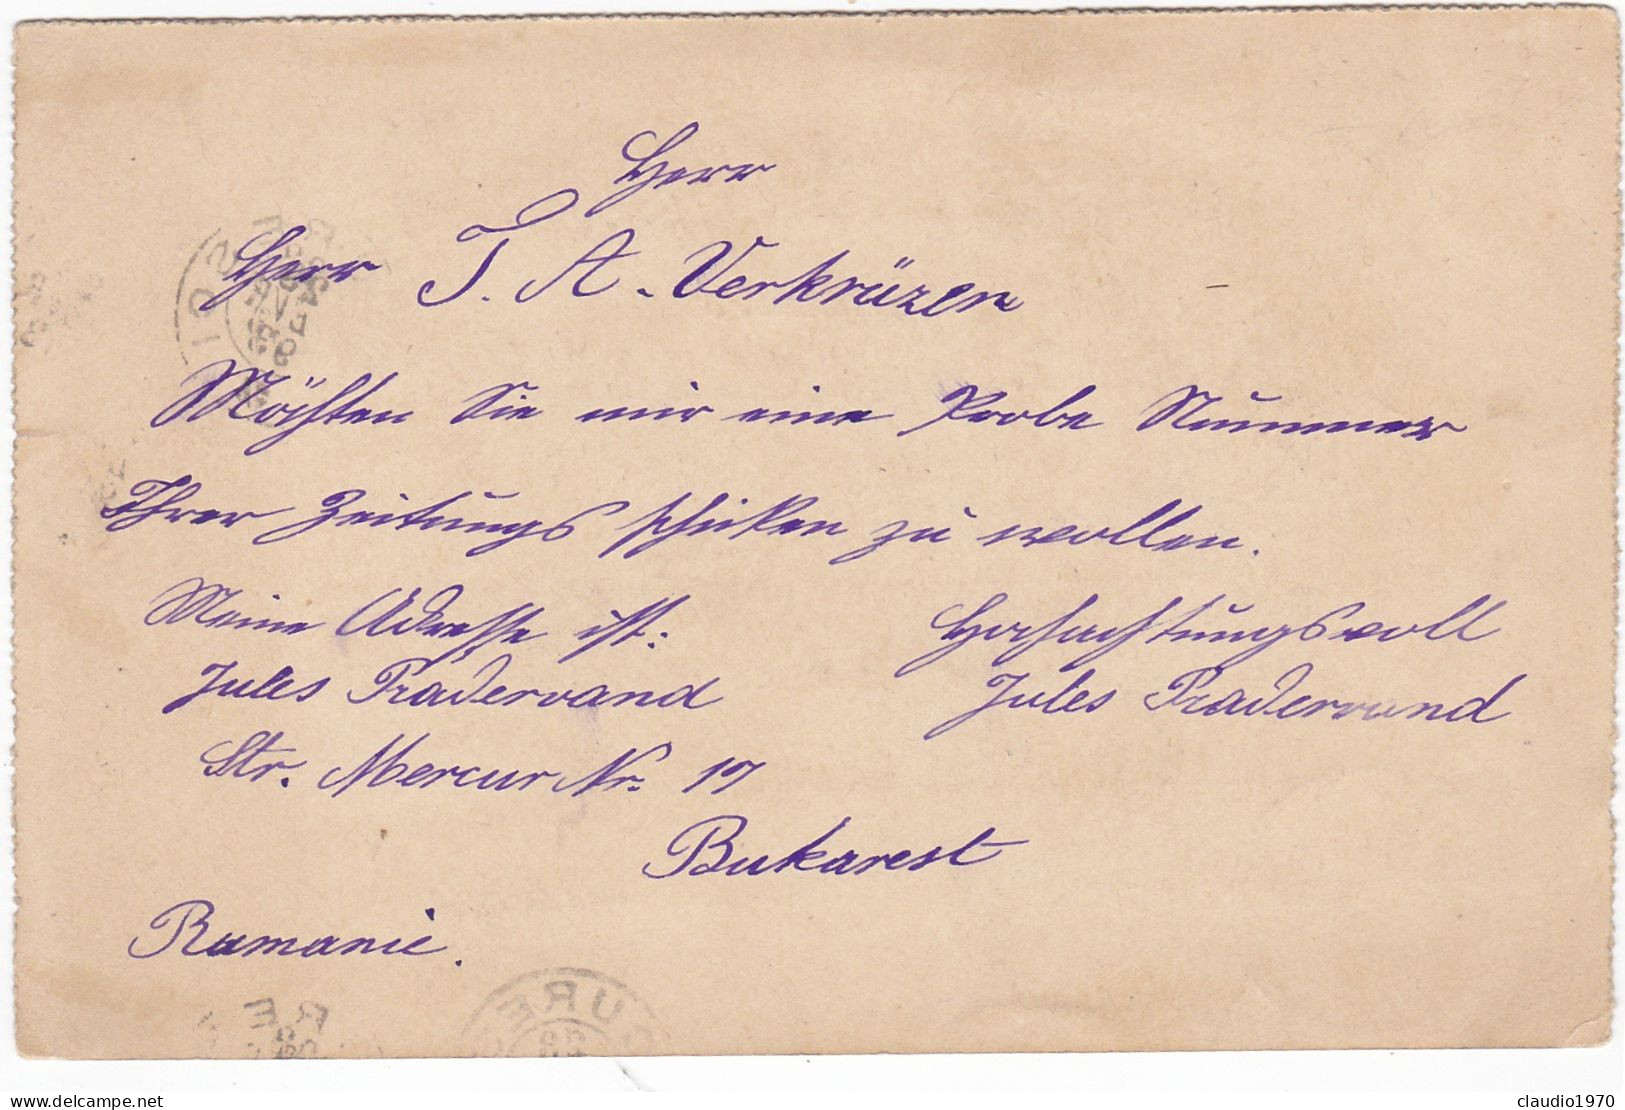 Herr
Herr T. A. Verkrüzen
Möchten Sie mir eine Probe Nummer
Ihrer Zeitungs schicken zu wollen.
Meine Adresse ist: Hochachtungsvoll
Jules Pradervand Jules Pradervand
Str. Mercur Nr. 17
Bukarest
Rumanie.
claudio1970